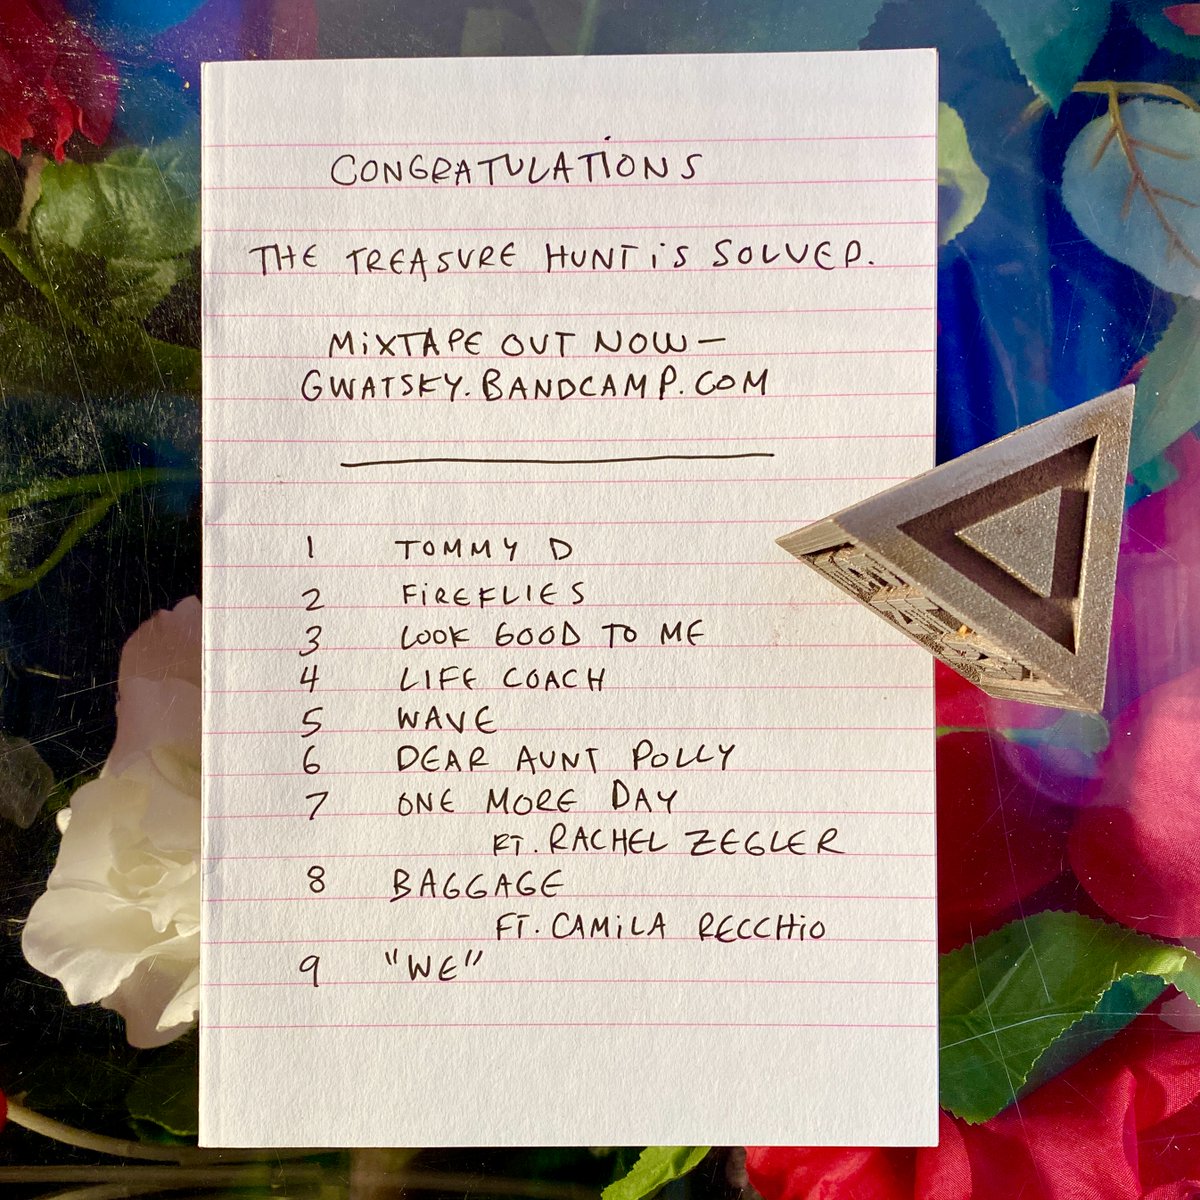 CONGRATULATIONS
THE TREASURE HUNT iS SOLVED.
MiXTAPE OUT NOW –
GWATSKY.BANDCAMP.COM
1 TOMMY D
2 FiREFLIES
3 LOOK GOOD TO ME
4 LIFE COACH
5 WAVE
6 DEAR AUNT POLLY
7 ONE MORE DAY
FT. RACHEL ZEGLER
8 BAGGAGE
FT. CAMiLA RECCHiO
9 "WE"